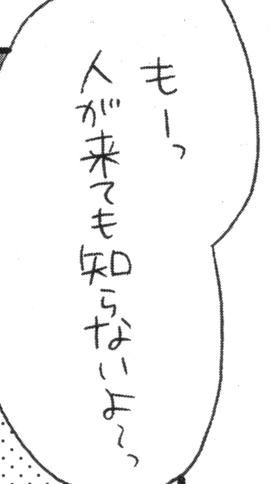 もーっ
人が来ても知らないよ〜っ